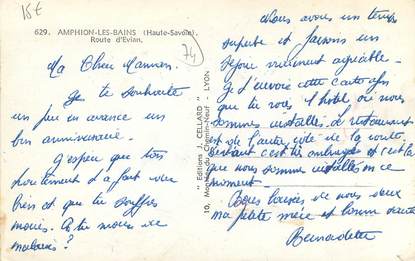 15€
629. AMPHION-LES-BAINS (Haute-Savoie).
Route d'Evian.
74
Ma Chère Maman.
Je te souhaite
un peu en avance un
bon anniversaire.
J'espère que ton
traitement a fait
bien et que tu souffres
moins. As tu moins de
malaises ?
" Editions CELLARD "
10, Montée du Chemin-Neuf LYON
Nous avons un temps
superbe et faisons un
séjour vraiment agréable.
Je t'envoie cette carte afin
que tu vois l'hôtel où nous
sommes installés. Le restaurant
est de l'autre côté de la route.
devant c'est très ombragé et c'est là
que nous sommes installés en ce
moment.
Bons baisers de nous deux
ma petite mère et bonne santé
Bernadette